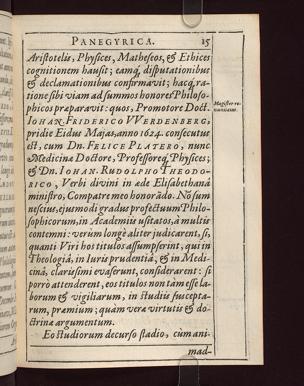 PANEGYRICA. 15
Aristotelis, Physices, Matheseos, & Ethices
cognitionem hausit; eamq́; disputationibus
& declamationibus confirmavit; hacq́; ra-
tione sibi viam ad summos honores Philoso-
phicos præparavit: quos, Promotore Doct.
IOHAN. FRIDERICO VVERDENBERG,
pridie Eidus Majas, anno 1624. consecutus
est, cum Dn. FELICE PLATERO, nunc
Medicinæ Doctore, Professoreq́; Physices;
& Dn. IOHAN. RUDOLPHO THEODO-
RICO, Verbi divini in æde Elisabethanâ
ministro, Compatre meo honorãdo. Nõ sum
nescius, ejusmodi gradus profectuum Philo-
sophicorum, in Academiis usitatos, à multis
contemni: verùm longè aliter judicarent, si,
quanti Viri hos titulos assumpserint, qui in
Theologiâ, in Iuris prudentiâ, & in Medi-
cinâ, clarissimi evaserunt, considerarent: si
porrò attenderent, eos titulos non tam esse la-
borum & vigiliarum, in studiis suscepta-
rum, præmium; quàm veræ virtutis & do-
ctrinæ argumentum.
Eo studiorum decurso stadio, cùm ani-
mad-
Magister re-